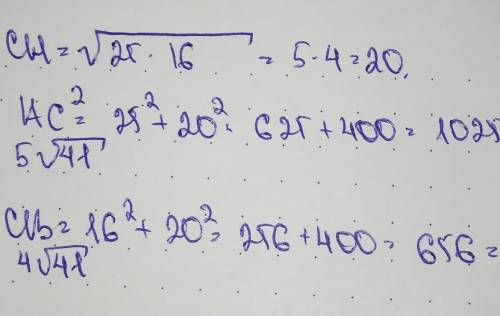 CH = √25 · 16 = 5 · 4 = 20.
AC² = 25² + 20² = 625 + 400 = 1025
5√41
CB = 16² + 20² = 256 + 400 = 656 =
4√41